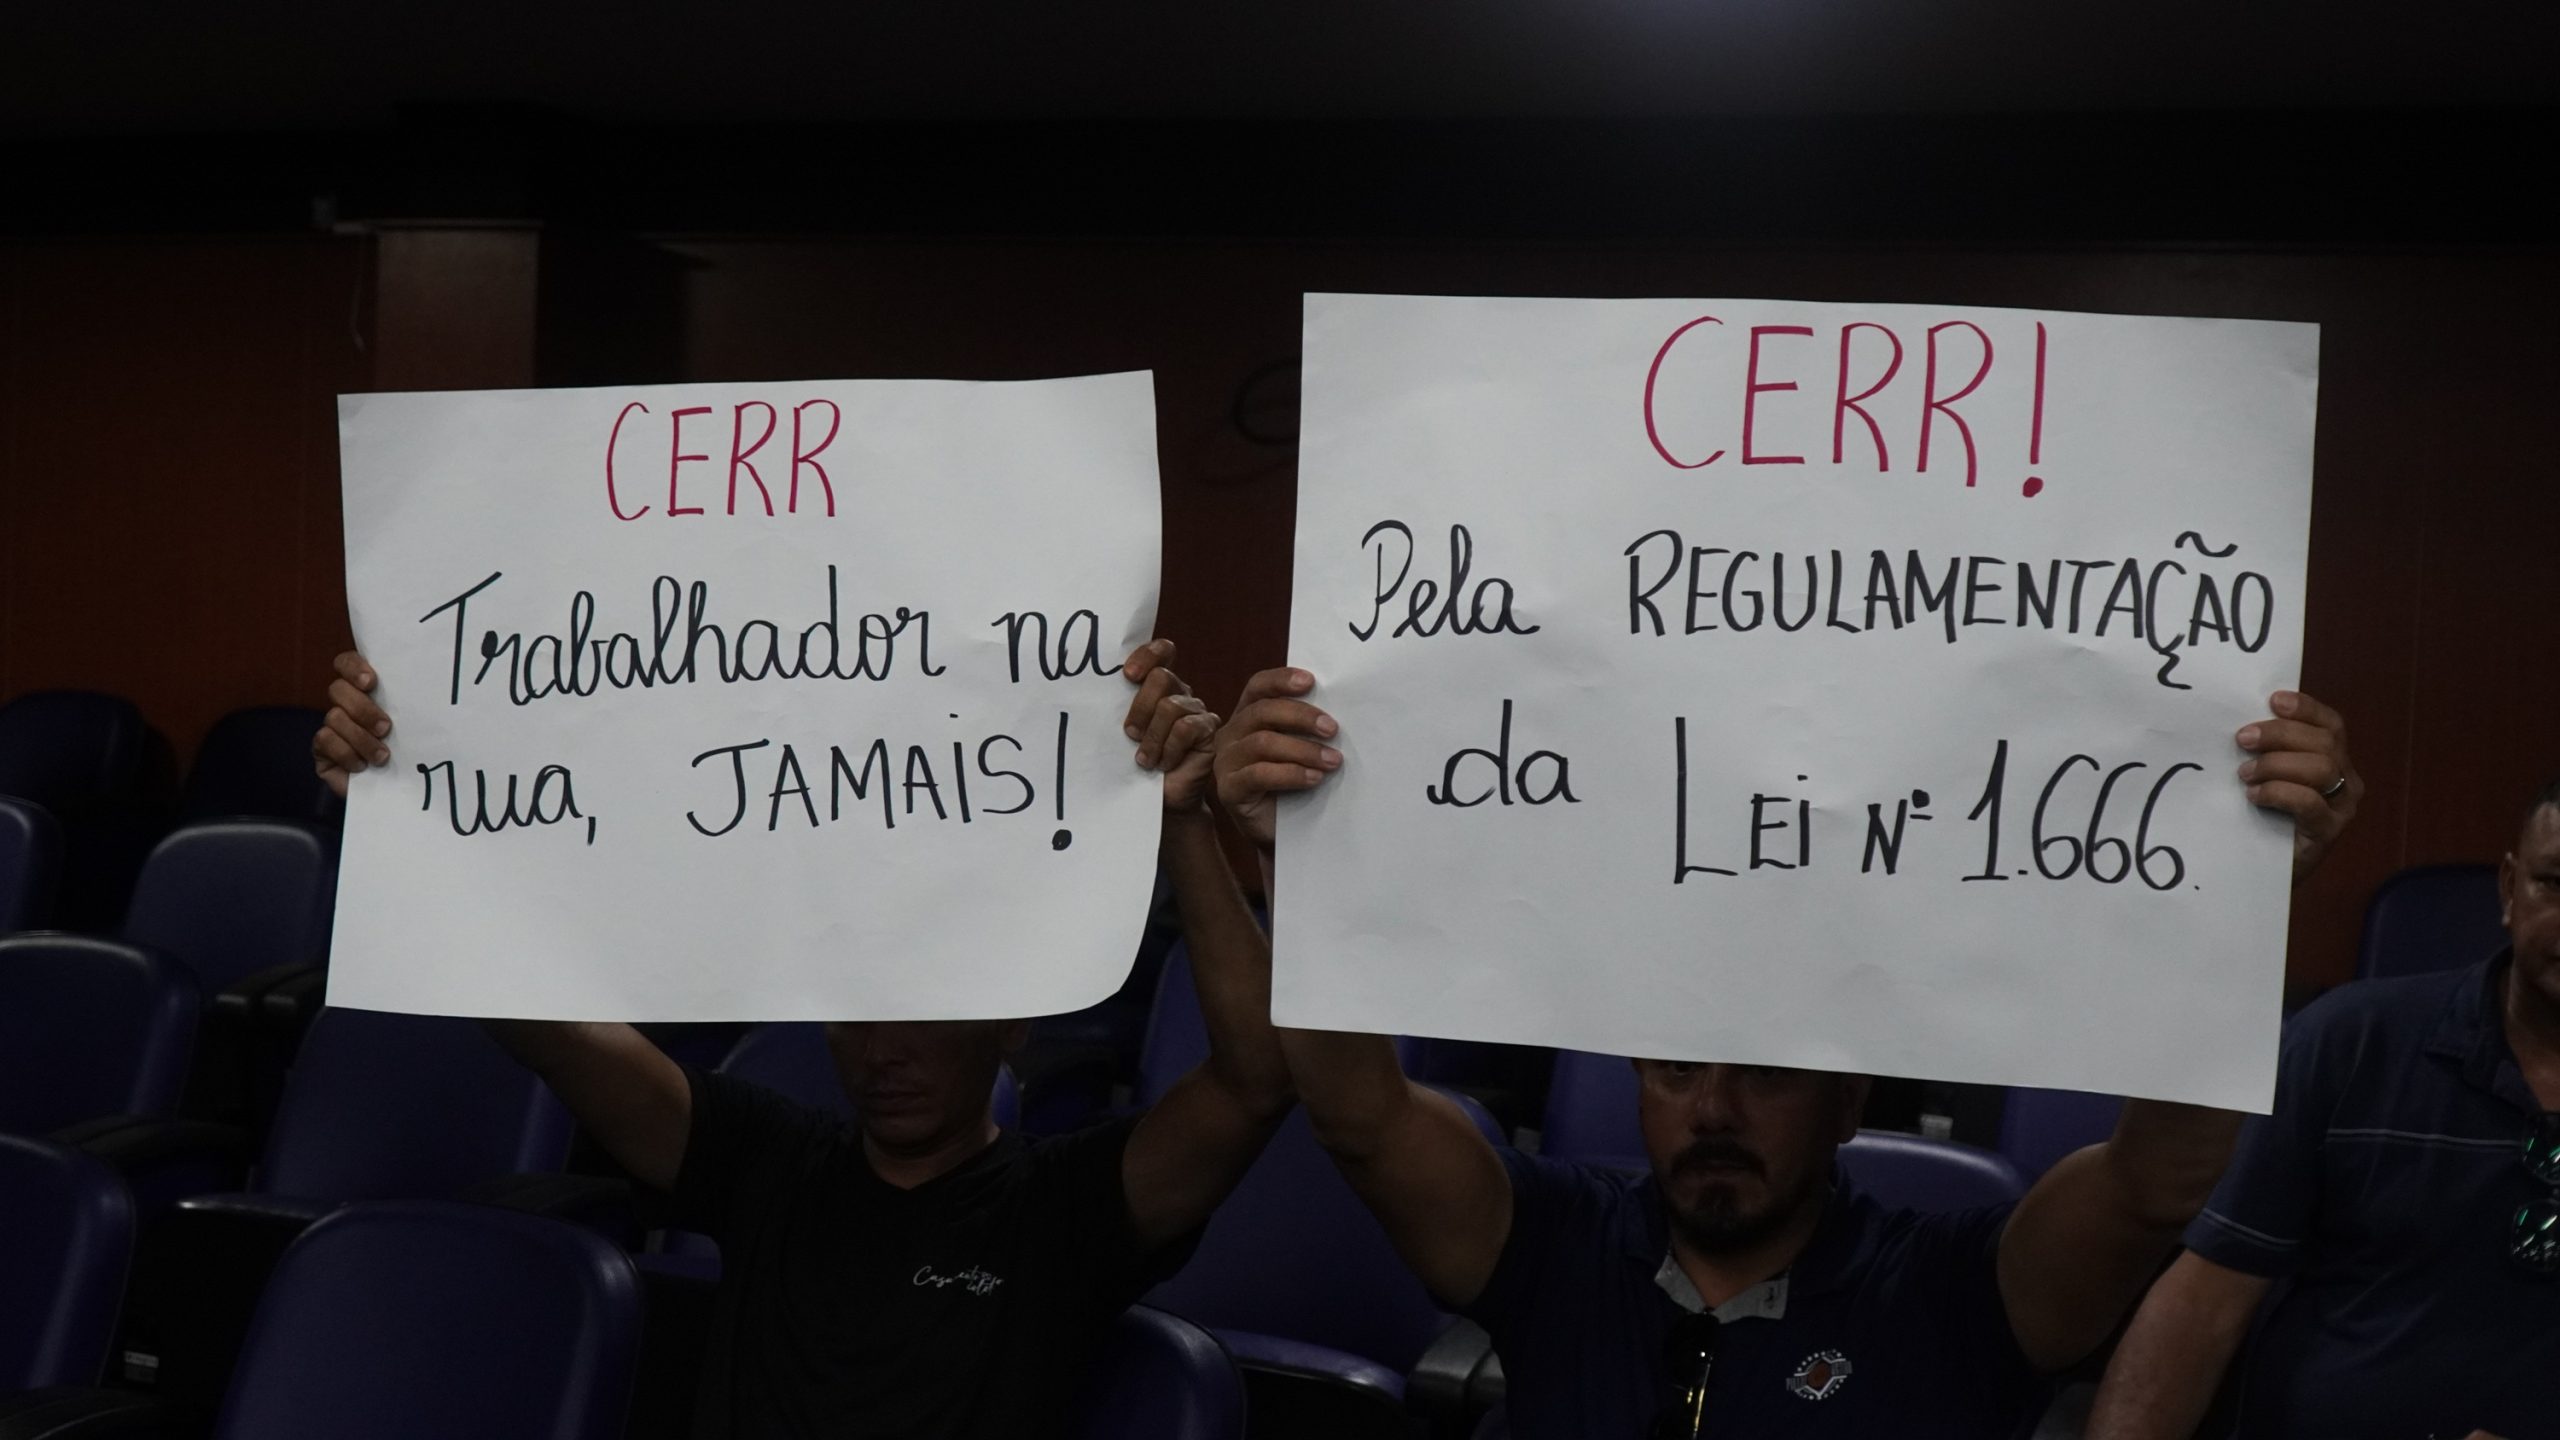 CERR
Trabalhador na
rua, JAMAIS!
CERR!
Pela REGULAMENTAÇÃO
da LEI Nº 1.666.